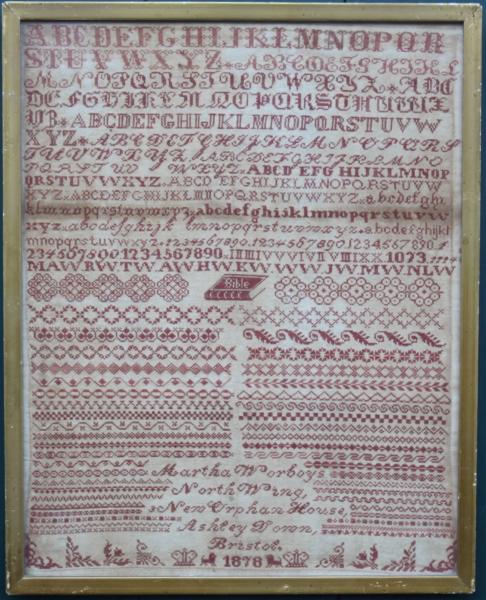 ABCDEFGHIJKLMNOPQR
STUVWXYZ ABCDEFGHIJKL
MNOPQRSTUVWXYZ ABC
DEFGHIJKLMNOPQRSTUVWX
YZ ABCDEFGHIJKLMNOPQRSTUVW
XYZ ABCDEFGHIJKLMNOPQRS
TUVWXYZ ABCDEFGHIJKLMNO
PQRSTUVWXYZ ABCDEFGHIJKLMNOP
QRSTUVWXYZ ABCDEFGHIJKLMNOPQRSTUVW
XYZ ABCDEFGHIJKLMNOPQRSTUVWXYZ abcdefghi
klmnopqrstuvwxyz abcdefghijklmnopqrstuvwx
xyz abcdefghijklmnopqrstuvwxyz abcdefghijkl
mnopqrstuvwxyz 1234567890 1234567890 1234567890 1
234567890 1234567890 I II III IV V VI VII VIII IX X 1073
MAW RW TW AW HW KW WW JW MW NLW
Bible
Martha Worboys
North Wing,
3 New Orphan House,
Ashley Down,
Bristol.
1878